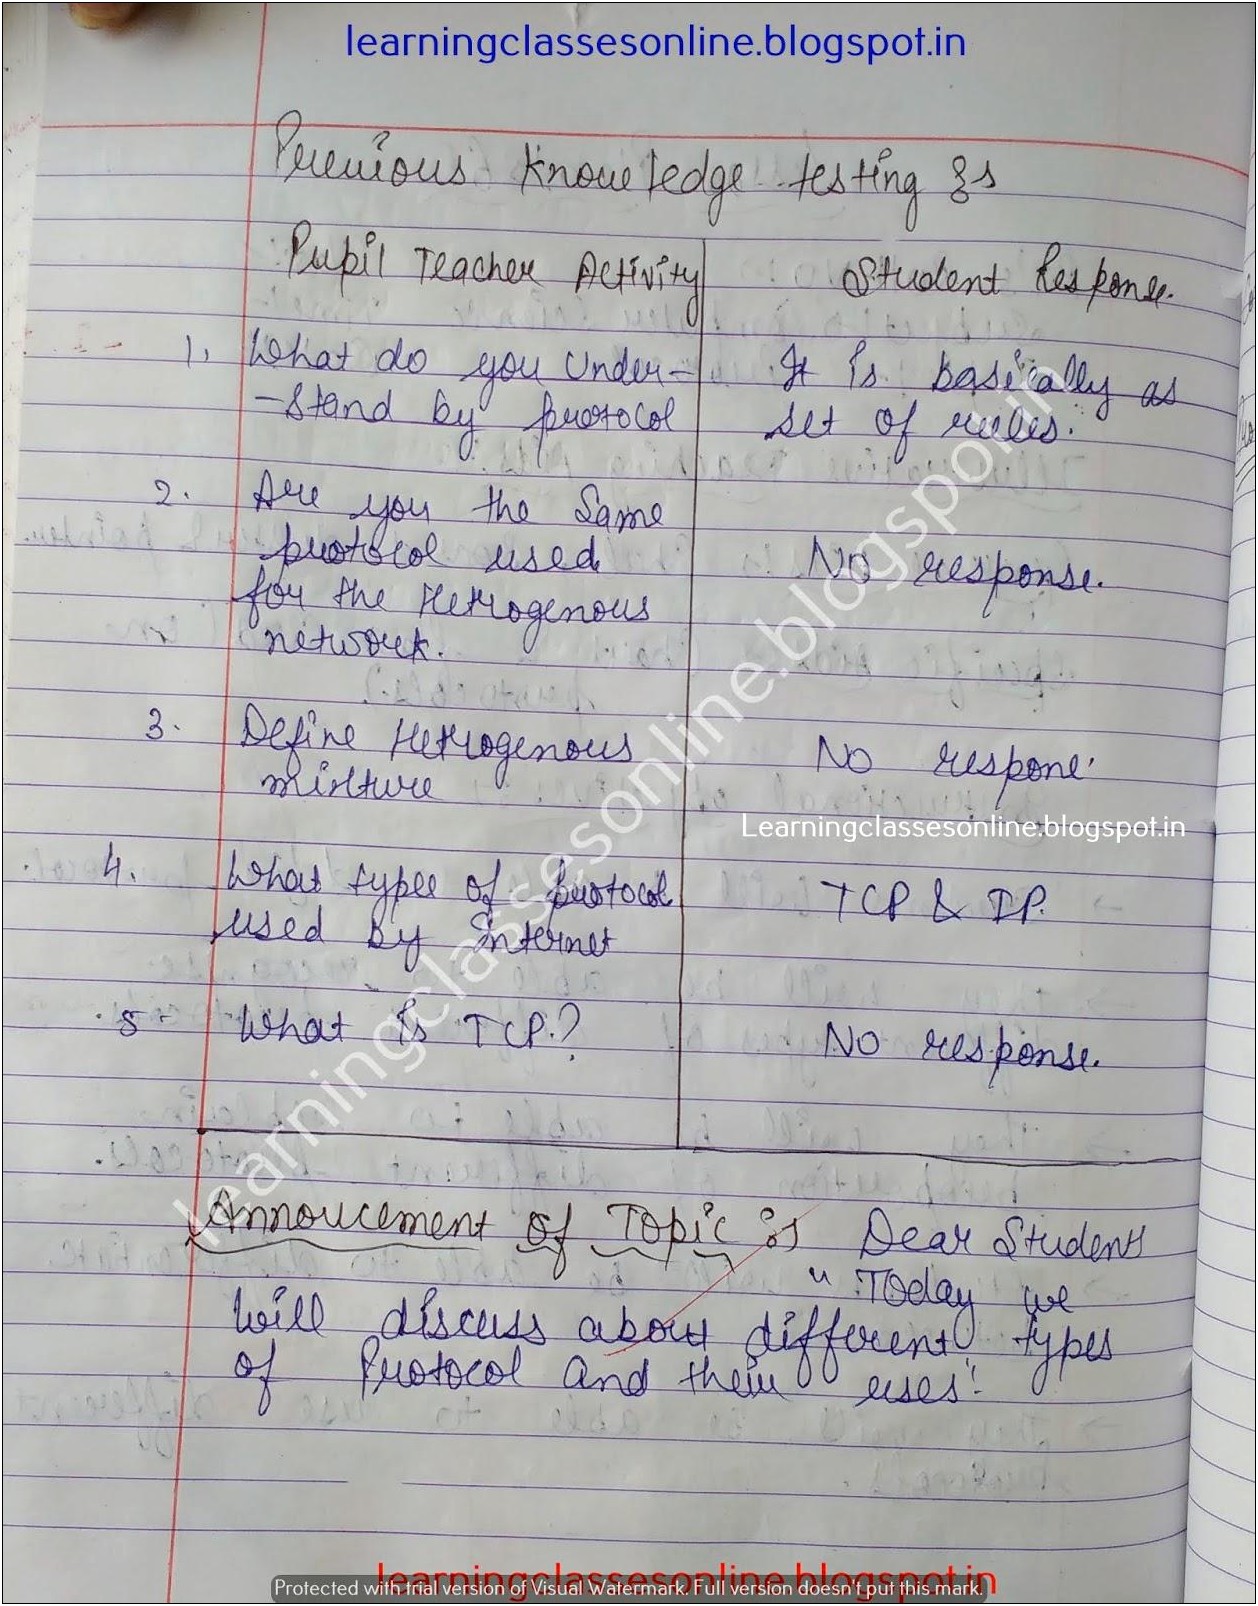 learningclassesonline.blogspot.in
Previous Knowledge testing :-
Pupil Teacher Activity Student Response.
1. What do you under- It is basically as
-stand by protocol set of rules.
2. Are you the Same
protocol used No response.
for the Hetrogenous
network.
3. Define Hetrogenous No respone.
mixture
Learningclassesonline.blogspot.in
4. What types of protocol TCP & IP.
used By Internet
5. What is TCP.? No response.
learningclassesonline.blogspot.in
Annoucement of Topic :- Dear Students
"Today we
will discuss about different types
of Protocol and their uses".
learningclassesonline.blogspot.in
Protected with trial version of Visual Watermark. Full version doesn't put this mark.